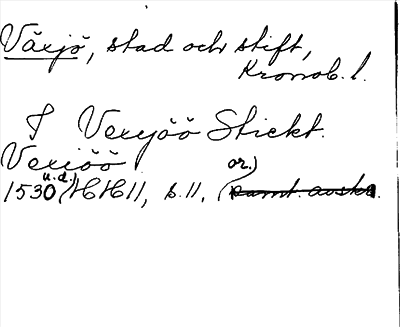 Växjö, stad och stift,
Kronob. l.
I Vexyöö Stickt.
Vexiöö
1530 (HH 11, s. 11, (samt. avskr.
u.d.) or.)